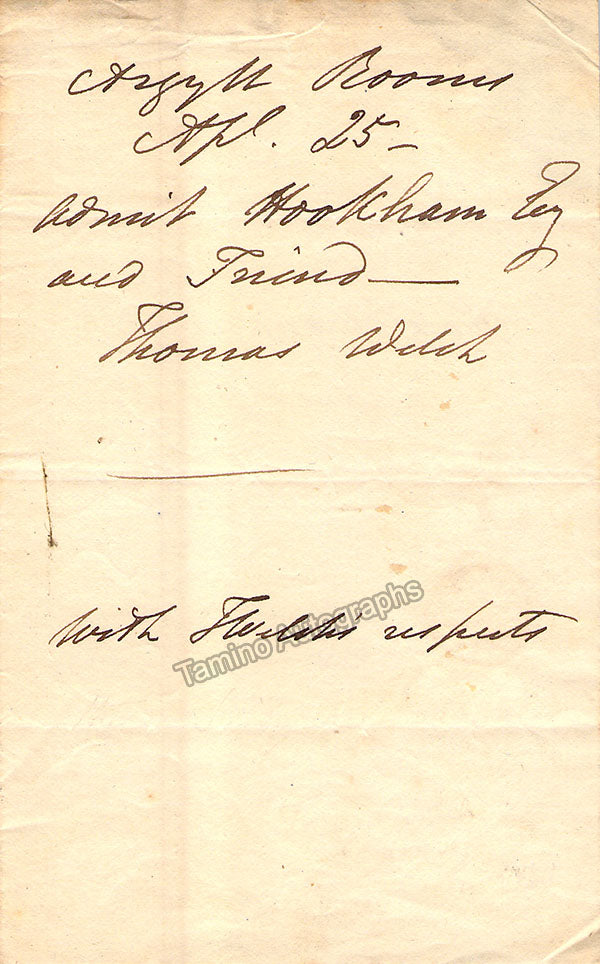 Argyll Rooms
Apl. 25—
Admit Hookham Esq
and Friend—
Thomas Welsh
with TWelsh's respects
Tamino Autographs